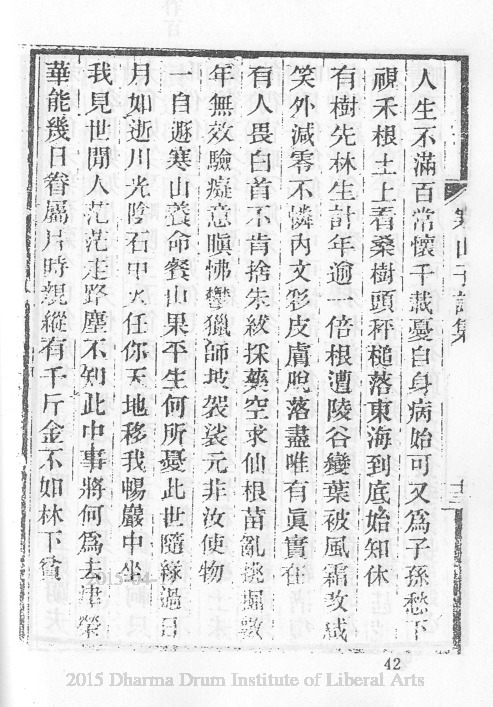 人生不滿百常懷千載憂自身病始可又為子孫愁下
視禾根土上看桑樹頭秤槌落東海到底始知休
有樹先林生計年逾一倍根遭陵谷變葉被風霜改咸
笑外凋零不憐內文彩皮膚脫落盡唯有真實在
有人畏白首不肯捨朱紱採藥空求仙根苗亂挑掘數
年無效驗癡意瞋怫鬱獵師披袈裟元非汝使物
一自遯寒山養命餐山果平生何所憂此世隨緣過日
月如逝川光陰石中火任你天地移我暢巖中坐
我見世間人茫茫走路塵不知此中事將何為去津榮
華能幾日眷屬片時親縱有千斤金不如林下貧
寒山子詩集
十三
42
2015 Dharma Drum Institute of Liberal Arts